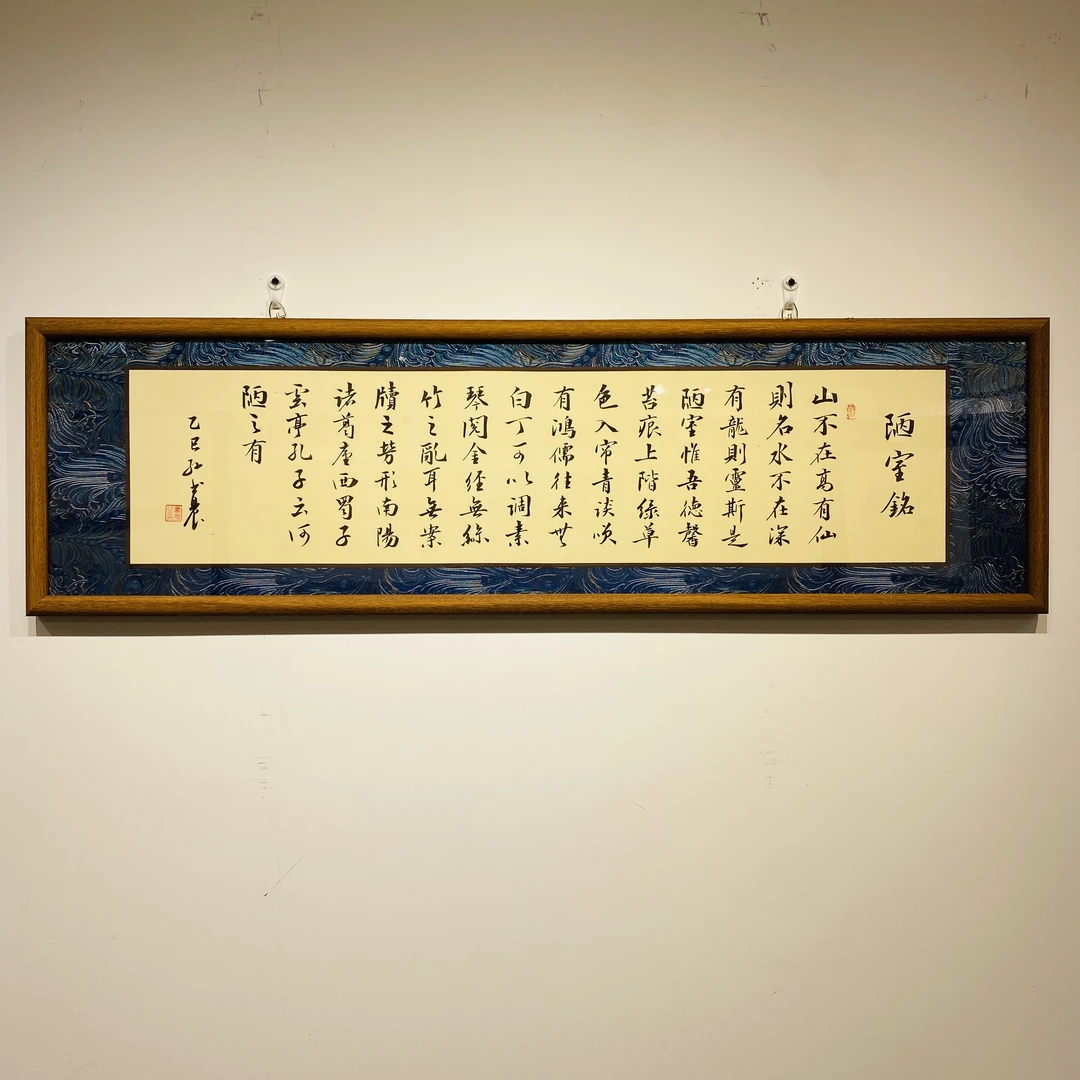 陋室銘
山不在高有仙
則名水不在深
有龍則靈斯是
陋室惟吾德馨
苔痕上階綠草
色入帘青談咲
有鴻儒往来無
白丁可以调素
琴阅金经無絲
竹之亂耳無案
牘之勞形南陽
诸葛廬西蜀子
雲亭孔子云何
陋之有
乙巳